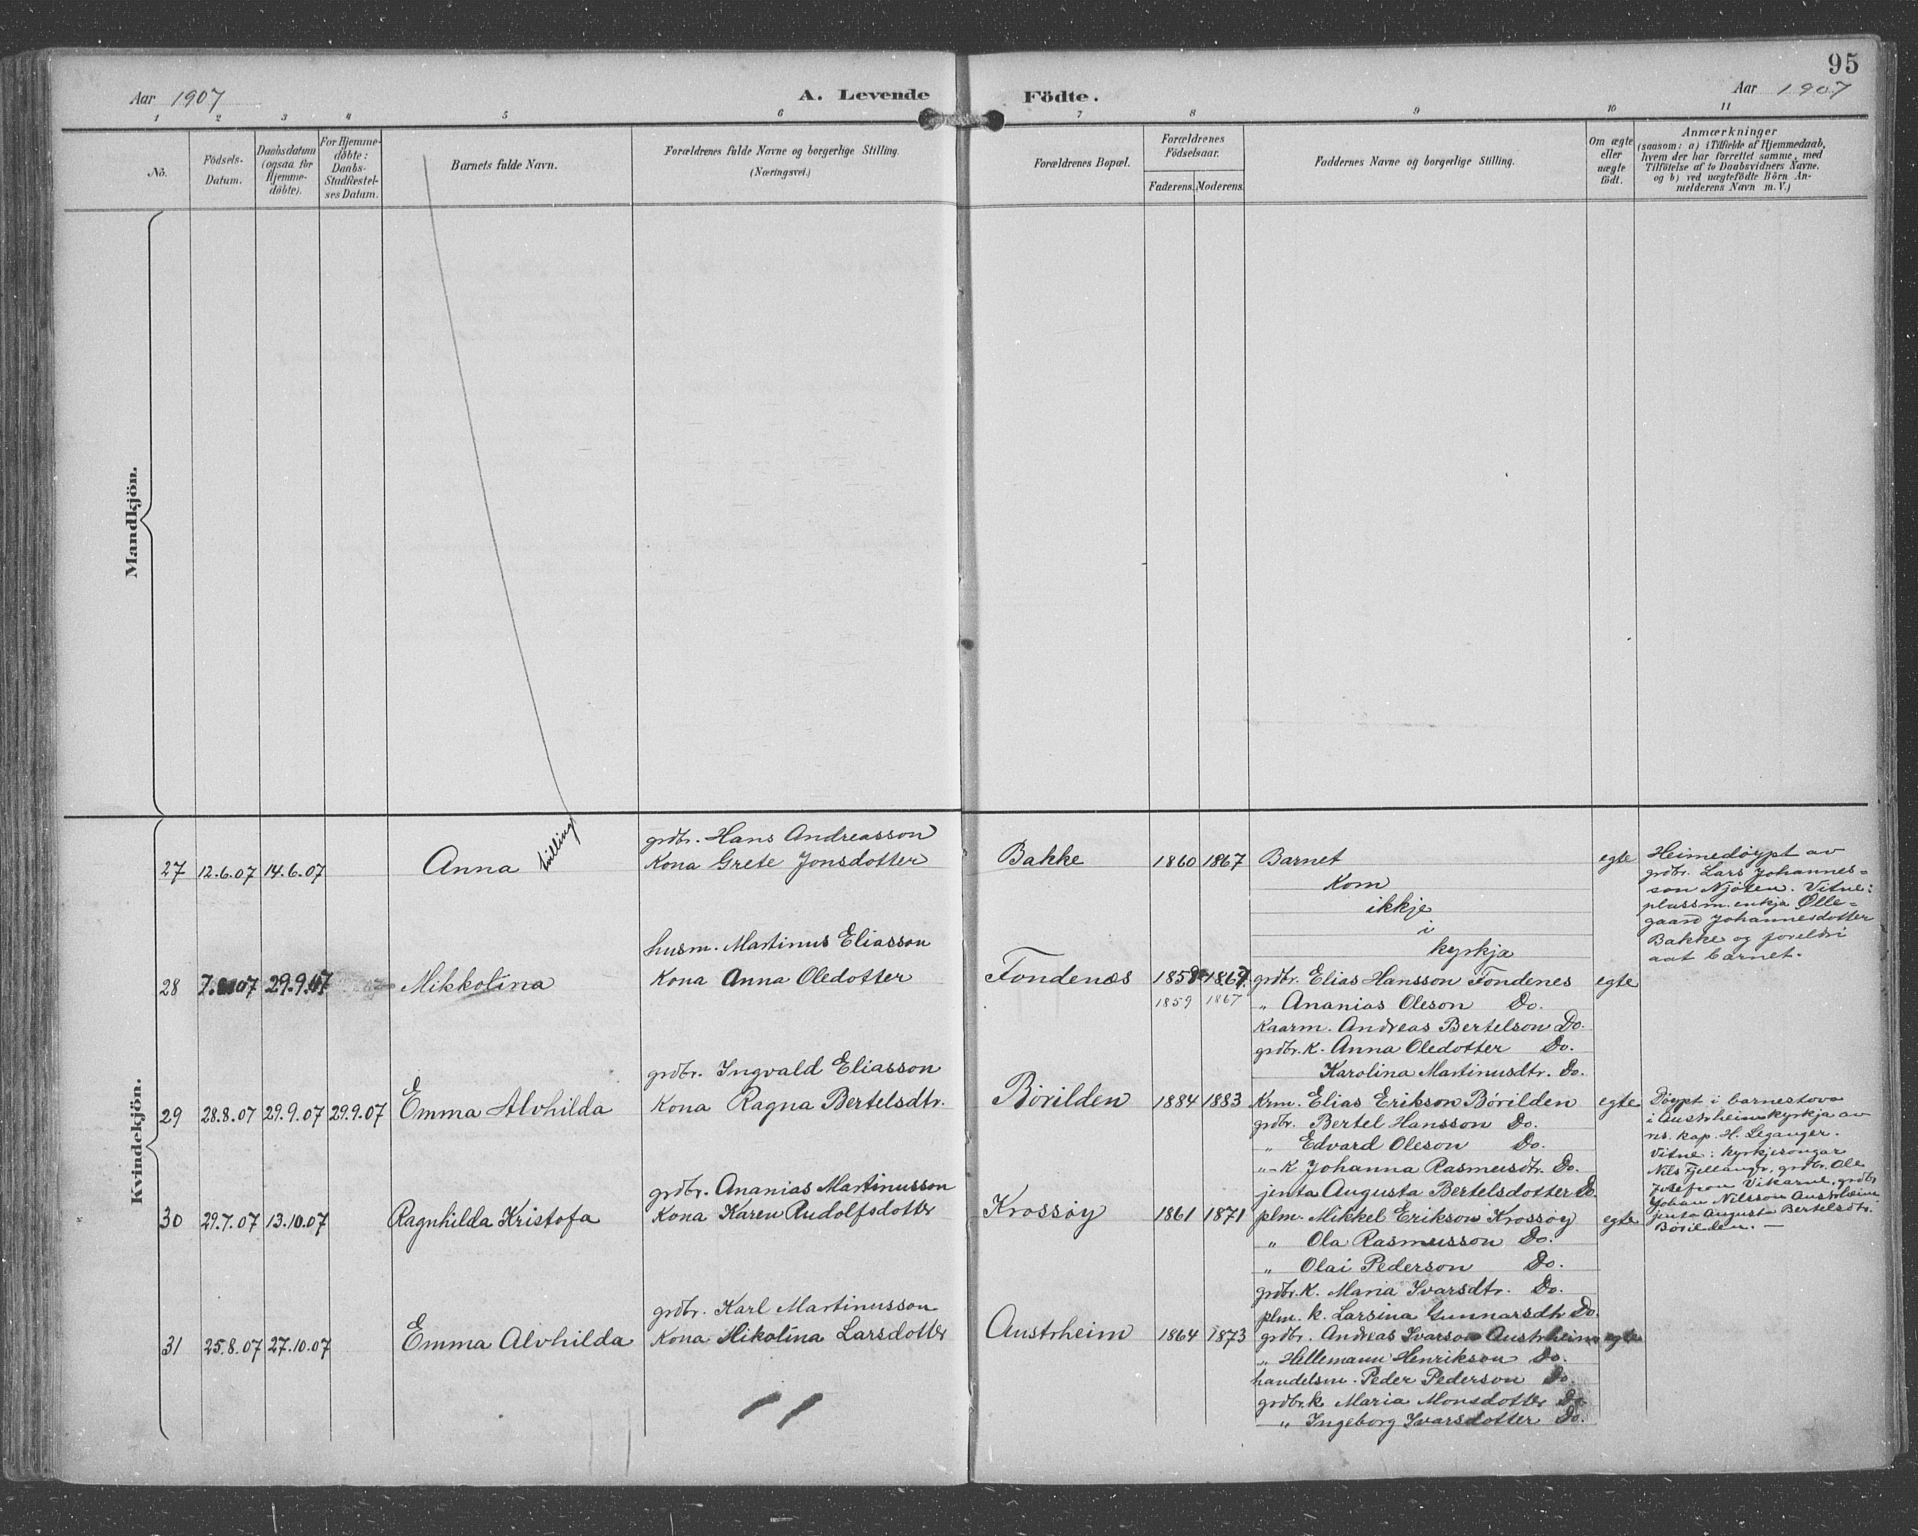 95
Aar 1907
A. Levende Födte.
Aar 1907
1 2 3 4 5 6 7 8 9 10 11
No.
Födsels-
Datum.
Daabsdatum
(ogsaa for
Hjemme-
döbte).
For Hjemme-
döbte:
Daabs-
Stadfestel-
ses Datum.
Barnets fulde Navn.
Forældrenes fulde Navne og borgerlige Stilling.
(Næringsvei.)
Forældrenes Bopæl.
Forældrenes
Födselsaar.
Faderens. Moderens.
Faddernes Navne og borgerlige Stilling.
Om ægte
eller
uægte
födt.
Anmærkninger
(saasom: a) i Tilfælde af Hjemmedaab,
hvem der har forrettet samme, med
Tilföielse af to Daabsvidners Navne.
og b) ved uægtefödte Börn An-
melderens Navn m. V.)
Mandkjön.
Kvindekjön.
27 12.6.07 14.6.07 Anna tvilling
grdbr. Hans Andreasson
Kona Grete Jonsdotter
Bakke 1860 1867
Barnet
kom
ikkje
i
kyrkja
egte
Heimedöypt av
grdbr. Lars Johannes-
son Njöten. Vitne:
plassm.enkja Olle-
gaard Johannesdotter
Bakke og foreldri
aat barnet.
28 29.9.07 Mikkolina
husm. Martinus Eliasson
Kona Anna Oledotter
Fondenæs
1859 1867
grdbr. Elias Hansson Fondenes egte
" Ananias Oleson Do.
Kaarm. Andreas Bertelson Do.
grdbr.k. Anna Oledotter Do.
Karolina Martinusdtr. Do.
29 28.8.07 29.9.07 29.9.07 Emma Alvhilda
grdbr. Ingvald Eliasson
Kona Ragna Bertelsdtr.
Börilden 1884 1883
Krm. Elias Erikson Börilden egte
grdbr. Bertel Hansson Do.
" Edvard Oleson Do.
"-k Johanna Rasmusdtr. Do.
jenta Augusta Bertelsdotter Do.
Döypt i barnestova
i Austrheimskyrkja av
res. kap. H. Leganger.
Vitne: kyrkjesongar
Nils Fjellanger, grdbr. Ole
Josefson Vikarne, grdbr.
Johan Nilsson Austrheim
jenta Augusta Bertelsdtr.
Börilden.—
30 29.7.07 13.10.07 Ragnhilda Kristofa
grdbr. Ananias Martinusson
Kona Karen Rudolfsdotter
Krossöy 1861 1871
plm. Mikkel Erikson Krossöy egte
" Ola Rasmusson Do.
" Olai Pederson Do.
grdbr.k. Maria Ivarsdtr. Do.
plm. k. Larsina Gunnarsdtr Do.
31 25.8.07 27.10.07 Emma Alvhilda
grdbr. Karl Martinusson
Kona Mikolina Larsdotter
Austrheim 1864 1873
grdbr. Andreas Ivarson Austrheim egte
" Hellemann Henrikson Do.
handelsm. Peder Pederson Do.
grdbr.k. Maria Monsdotter Do
" Ingeborg Ivarsdotter Do.